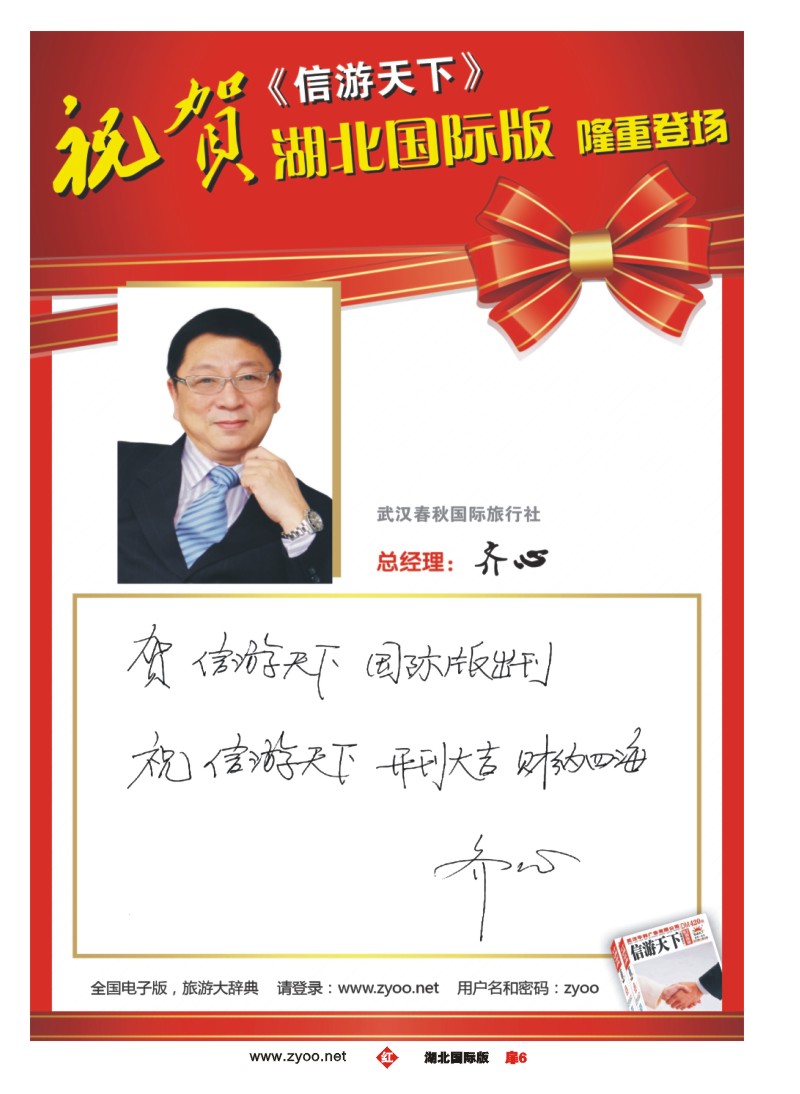 祝贺《信游天下》
湖北国际版 隆重登场
武汉春秋国际旅行社
总经理：齐心
贺 信游天下 国际版出刊
祝 信游天下 开刊大吉 财纳四海
齐心
信游天下
全国电子版，旅游大辞典 请登录：www.zyoo.net 用户名和密码：zyoo
www.zyoo.net 红 湖北国际版 扉6